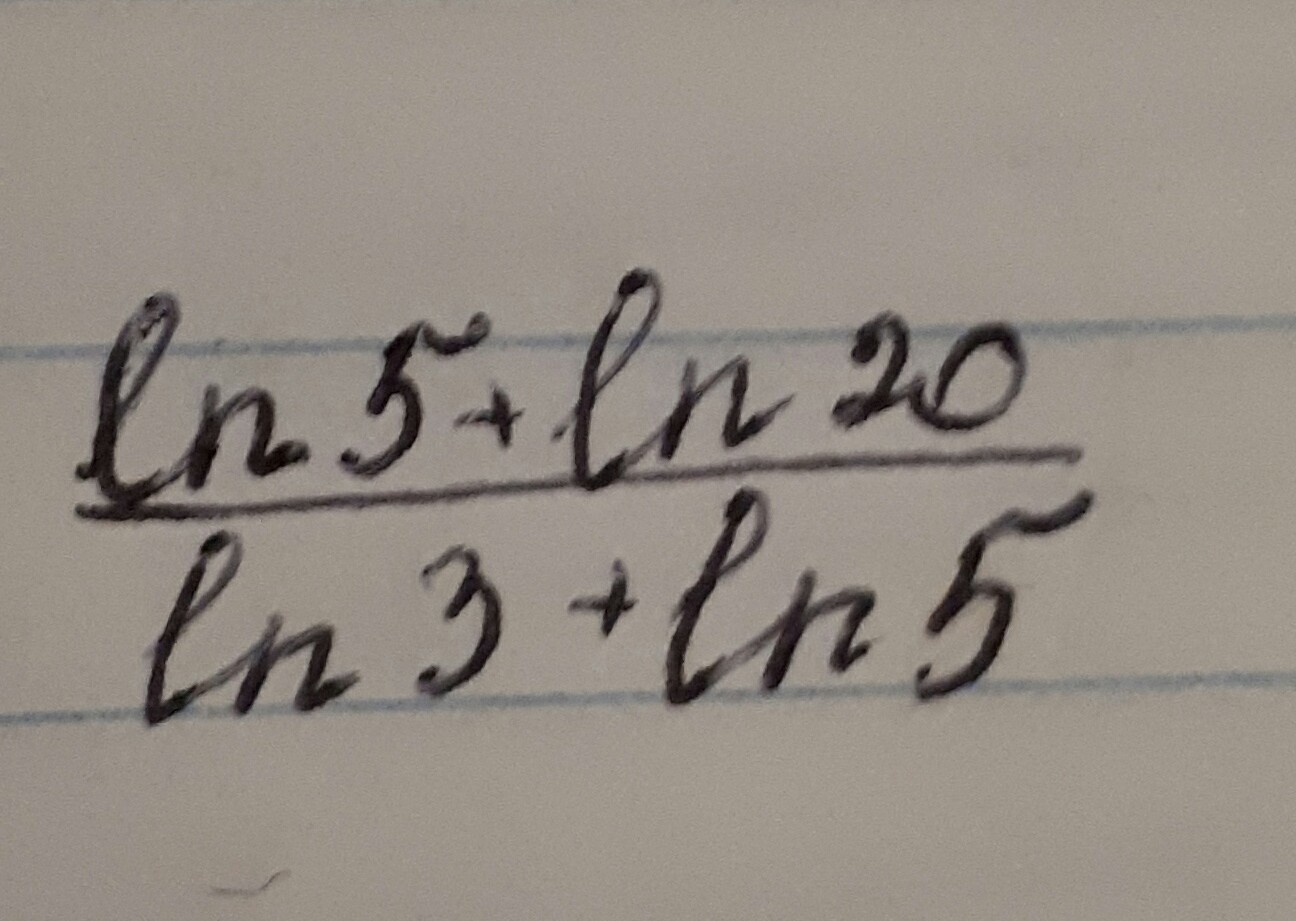 ln 5 + ln 20
ln 3 + ln 5